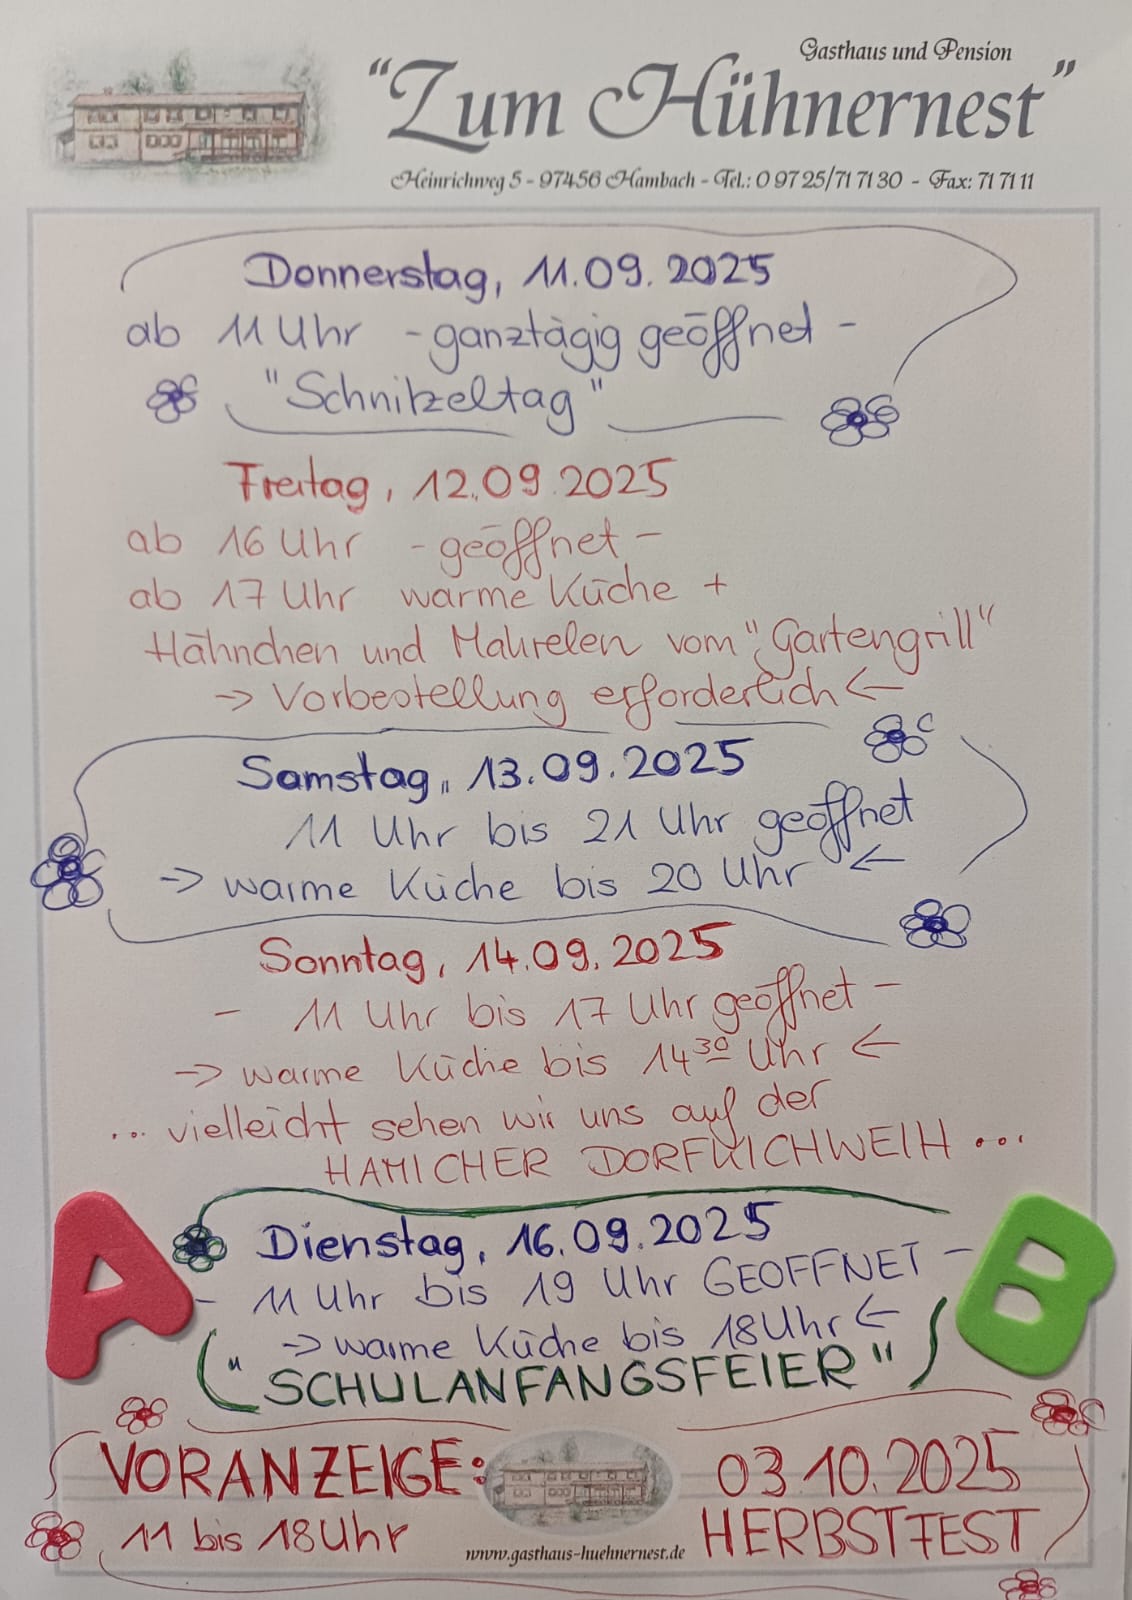 Gasthaus und Pension
"Zum Hühnernest"
Heinrichweg 5 - 97456 Hambach - Tel.: 0 97 25/71 71 30 - Fax: 71 71 11
Donnerstag, 11.09.2025
ab 11 Uhr - ganztägig geöffnet -
"Schnitzeltag"
Freitag, 12.09.2025
ab 16 Uhr - geöffnet -
ab 17 Uhr warme Küche +
Hähnchen und Makrelen vom "Gartengrill"
-> Vorbestellung erforderlich <-
Samstag, 13.09.2025
11 Uhr bis 21 Uhr geöffnet
-> warme Küche bis 20 Uhr <-
Sonntag, 14.09.2025
- 11 Uhr bis 17 Uhr geöffnet -
-> warme Küche bis 14³⁰ Uhr <-
... vielleicht sehen wir uns auf der
HAMICHER DORFKICHWEIH ...
Dienstag, 16.09.2025
- 11 Uhr bis 19 Uhr GEÖFFNET -
-> warme Küche bis 18 Uhr <-
A "SCHULANFANGSFEIER" B
VORANZEIGE: 03.10.2025
11 bis 18 Uhr HERBSTFEST
www.gasthaus-huehnernest.de